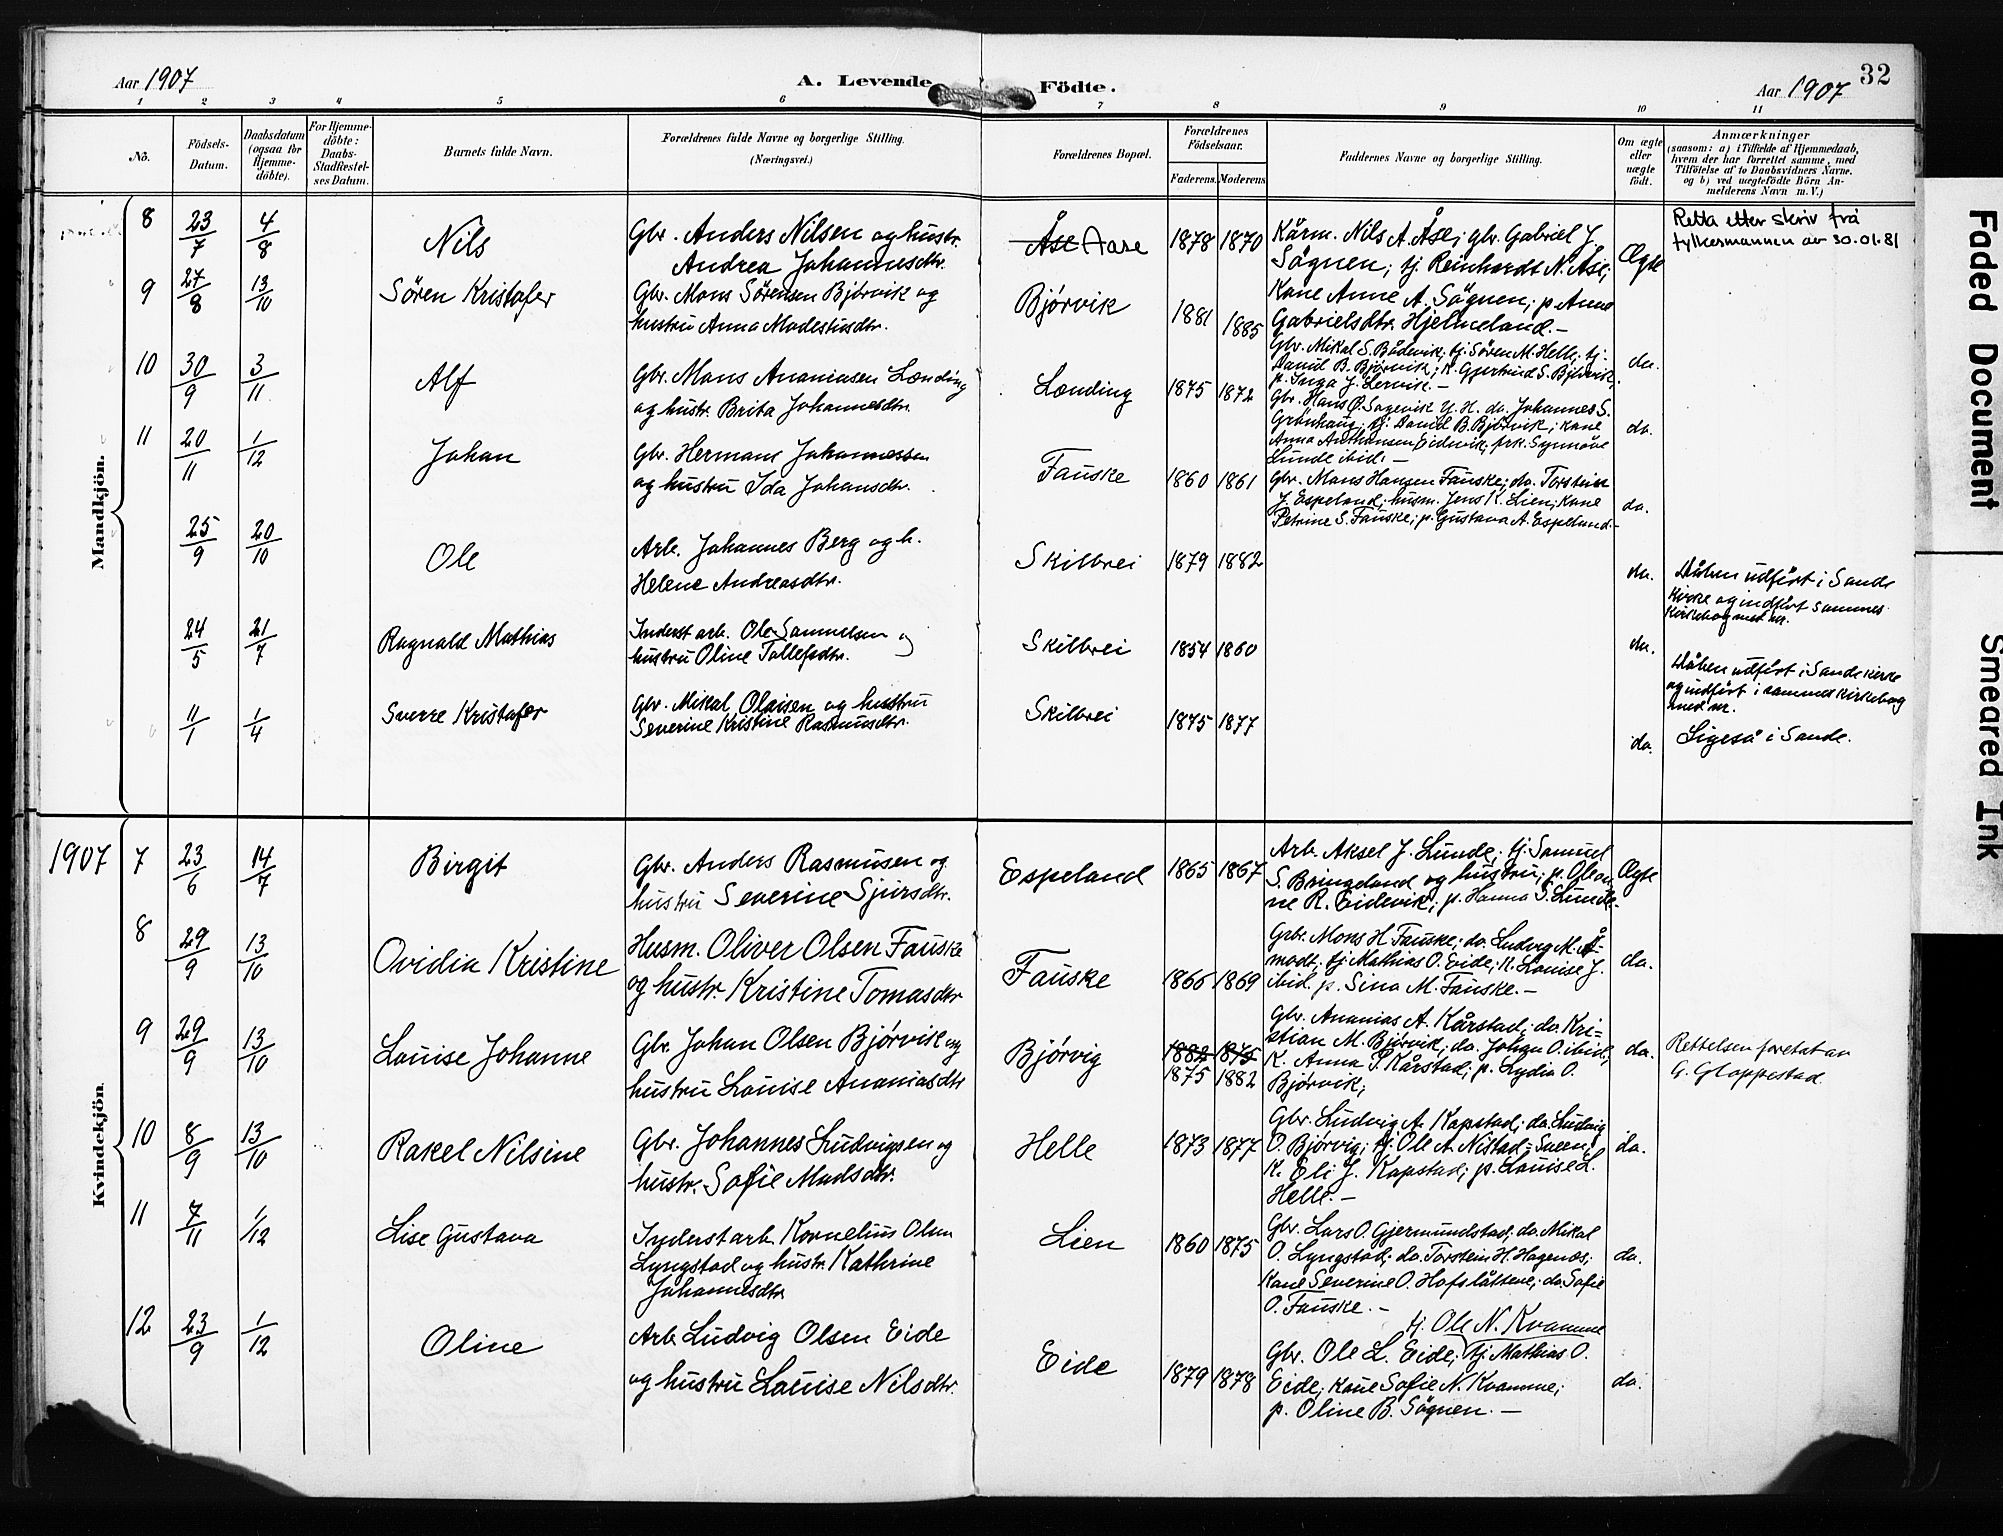 Aar 1907
A. Levende Födte.
Aar 1907
32
1 2 3 4 5 6 7 8 9 10 11
No.
Födsels-
Datum.
Daabsdatum
(ogsaa for
Hjemme-
döbte).
For Hjemme-
döbte:
Daabs-
Stadfæstel-
ses Datum.
Barnets fulde Navn.
Forældrenes fulde Navne og borgerlige Stilling.
(Næringsvei.)
Forældrenes Bopæl.
Forældrenes
Födselsaar.
Faderens. Moderens
Faddernes Navne og borgerlige Stilling.
Om ægte
eller
uægte
födt.
Anmærkninger
(saasom: a) i Tilfælde af Hjemmedaab,
hvem der har forrettet samme, med
Tilföielse af to Daabsvidners Navne.
og b) ved uægtefödte Börn An-
melderens Navn m. V.)
Mandkjön.
8 23/7 4/8 Nils
Gbr. Anders Nilsen og hustr.
Andrea Johannesdtr.
Åse Aase 1878 1870
Kårm. Nils A. Åse; gbr. Gabriel J.
Sögnen; tj. Reinhardt N. Åse;
Kone Anne A. Sögnen; p. Anna
Gabrielsdtr. Hjelmeland. –
Ægte
Retta etter skriv frå
fylkesmannen av 30.01.81
9 27/8 13/10 Sören Kristofer
Gbr. Mons Sörensen Björvik og
hustru Anna Modestusdtr.
Björvik 1881 1885
Gbr. Mikal S. Bödevik; tj. Sören M. Helle; tj.
Daniel B. Björvik; K. Gjertrud S. Björvik;
p. Inga J. Lervik. –
do.
10 30/9 3/11 Alf
Gbr. Mons Ananiasen Lending
og hustr. Brita Johannesdtr.
Lending 1875 1872
Gbr. Hans Ø. Sagevik Y. H. do. Johannes S.
Grönhaug; tj. Daniel B. Björvik; kone
Anna Anthonsen Eidevik; frk. Synnöve
Lunde ibid. –
do.
11 20/11 1/12 Johan
Gbr. Hermann Johannessen
og hustru Ida Johansdtr.
Fauske 1860 1861
Gbr. Mons Hansen Fauske; do. Torstein
J. Espeland; husm. Jens K. Lien; Kone
Petrine S. Fauske; p. Gustava A. Espeland –
do.
25/9 20/10 Ole
Arb. Johannes Berg og h.
Helene Andreasdtr.
Skilbrei 1879 1882
do.
Dåben udfört i Sande
Kirke og indfört sammes
Kirkebog med nr.
24/5 21/7 Ragnald Mathias
Inderst arb. Ole Samuelsen og
hustru Oline Tollefsdtr.
Skilbrei 1854 1860
do.
Dåben udfört i Sande kirke
og indfört i sammes kirkebog
med nr.
11/1 1/4 Sverre Kristofer
Gbr. Mikal Olaisen og hustru
Severine Kristine Rasmusdtr.
Skilbrei 1875 1877
do.
Ligeså i Sande.
1907
Kvindekjön
7 23/6 14/7 Birgit
Gbr. Anders Rasmusen og
hustru Severine Sjursdtr.
Espeland 1865 1867
Arb. Aksel J. Lunde; tj. Samuel
S. Bringeland og hustru; p. Olea-
ne R. Eidevik; p. Hanna S. Lunde.
Ægte
8 29/9 13/10 Ovidia Kristine
Husm. Oliver Olsen Fauske
og hustr. Kristine Tomasdtr
Fauske 1866 1869
Gbr. Mons H Fauske; do. Ludvig M. Å-
modt; tj Mathias O. Eide; K. Louise J.
ibid. p. Sina M. Fauske. –
do.
9 29/9 13/10 Louise Johanne
Gbr. Johan Olsen Björvik og
hustru Louise Ananiasdtr
Björvig 1882 1875
1875 1882
Gbr. Ananias A. Kårstad; do. Kri-
stian M. Björvik; do. Johan O. ibid;
K. Anna P. Kårstad; p. Lydia O.
Björvik;
do.
Rettelsen foretat av
G. Gloppestad.
10 8/9 13/10 Rakel Nilsine
Gbr. Johannes Ludvigsen og
hustr. Sofie Madsdtr.
Helle 1873 1877
Gbr. Ludvig A. Kapstad; do. Ludvig
O. Björvig; tj. Ole A. Nistad-Sveen;
K. Eli J. Kapstad; p. Louise L.
Helle. –
do.
11 7/11 1/12 Lise Gustava
Inderst arb. Kornelius Olsen
Lyngstad og hustr. Kathrine
Johannesdtr
Lien 1860 1875
Gbr. Lars O. Gjermundstad; do. Mikal
O. Lyngstad; do. Torstein H. Hagenæs;
Kone Severine O. Hofslåttene; do. Sofie
O. Fauske. –
do.
12 23/9 1/12 Oline
Arb. Ludvig Olsen Eide
og hustru Louise Nilsdtr.
Eide 1879 1878
tj. Ole N. Kvamme
Gbr. Ole L. Eide; tj Mathias O.
Eide; Kone Sofie N. Kvamme;
p. Oline B. Sögnen. –
do.
Faded Document
Smeared Ink